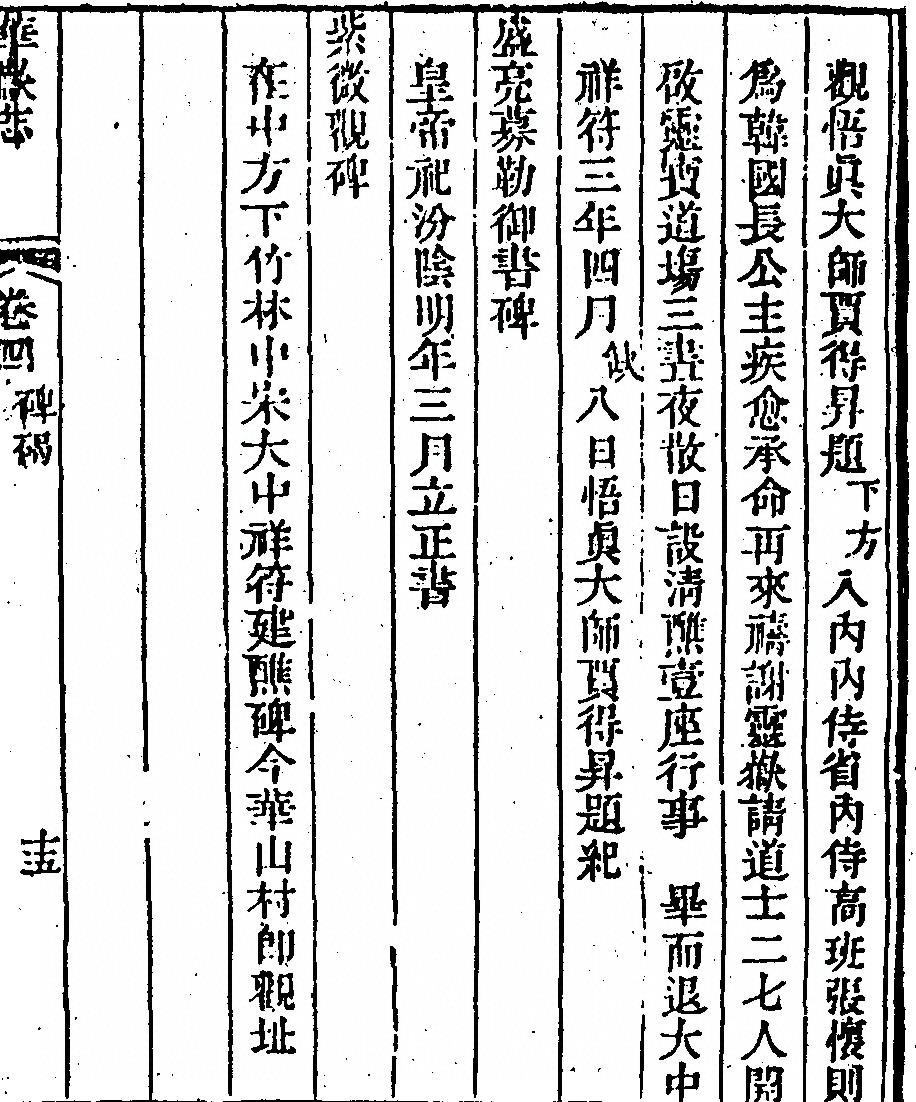 觀悟眞大師賈得昇題下方入內內侍省內侍高班張懷則
爲韓國長公主疾愈承命再來禱謝靈嶽請道士二七人開
啟靈寶道場三晝夜散日設淸醮壹座行事　畢而退大中
祥符三年四月缺八日悟眞大師賈得昇題紀
盛亮摹勒御書碑
皇帝祀汾陰明年三月立正書
紫微觀碑
在中方下竹林中宋大中祥符建醮碑今華山村卽觀址
華嶽志
卷四 碑碣
十五